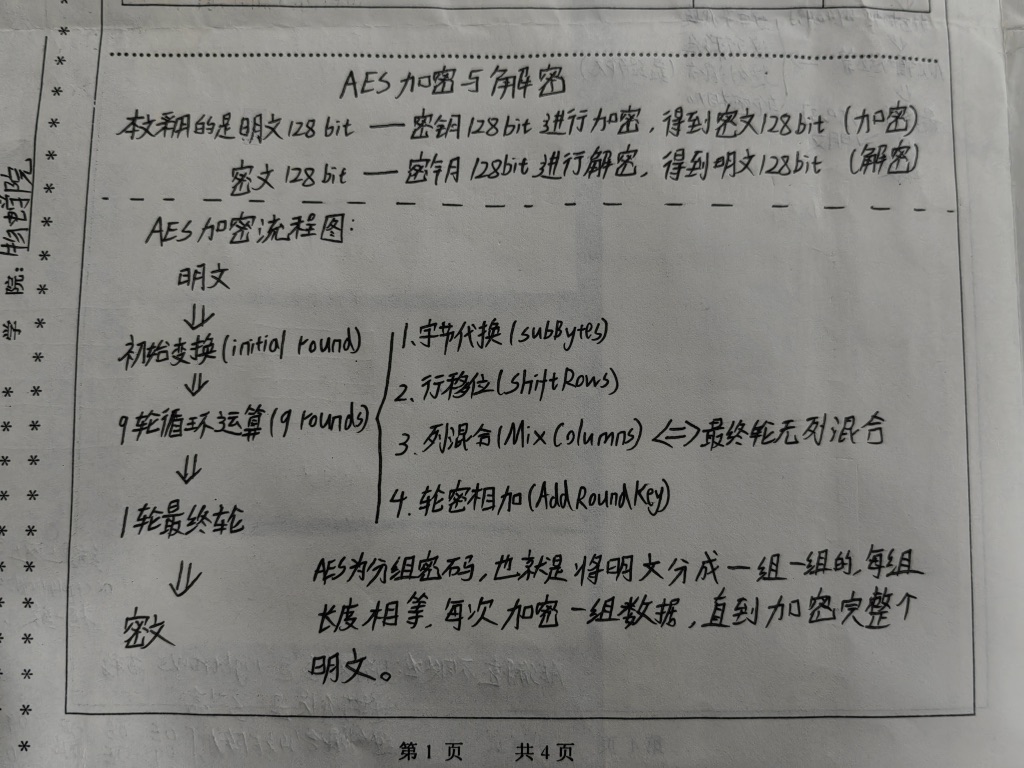 AES加密与解密
本文采用的是明文128 bit — 密钥128bit 进行加密，得到密文128bit (加密)
密文128 bit — 密钥128bit 进行解密，得到明文128bit (解密)
AES加密流程图：
明文
⇓
初始变换(initial round)
⇓
9轮循环运算(9 rounds)
⇓
1轮最终轮
⇓
密文
1.字节代换(subBytes)
2.行移位(ShiftRows)
3.列混合(MixColumns) <=>最终轮无列混合
4.轮密相加(AddRoundKey)
AES为分组密码，也就是将明文分成一组一组的，每组
长度相等，每次加密一组数据，直到加密完整个
明文。
学院：物电学院
第 1 页 共 4 页